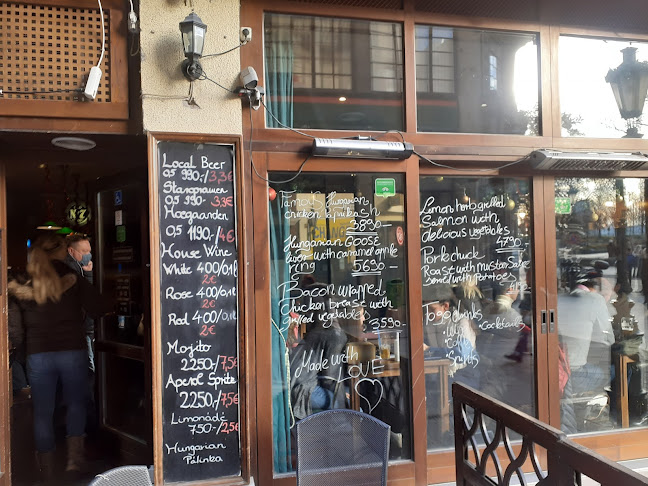 Local Beer
05 990.-/3,3€
Staropramen
05 990.- 3.3€
Hoegaarden
05 1190.-/4€
House Wine
White 400/01l
2€
Rose 400/01l
2€
Red 400/01l
2€
Mojito
2250.-/7,5€
Aperol Spritz
2250.-/7,5€
Limonádé
750.-/2,5€
Hungarian
Pálinka
Famous Hungarian
chicken paprikash
3890.-
Hungarian GOOSE
liver with caramel apple
ring 5690.-
Bacon wrapped
Chicken breast with
grilled vegetables
3590.-
Made with
LOVE
Lemon herb grilled
Salmon with
delicious vegetables
4790.-
Pork chuck
Roast with Mustard Sauce
served with potatoes
Togo drinks
Cocktails
Coffee
Spirits